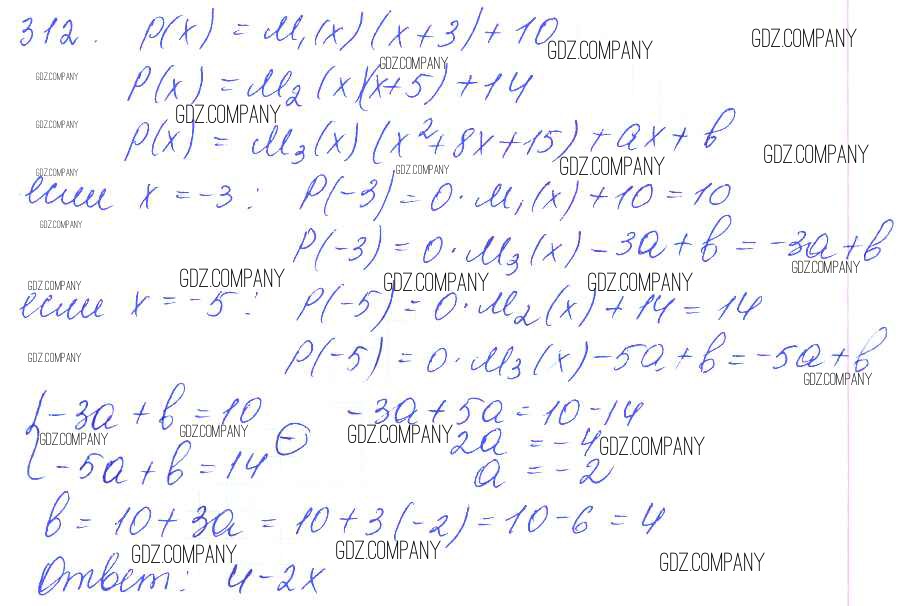 312. P(x) = M₁(x)(x+3)+10
GDZ.COMPANY GDZ.COMPANY
GDZ.COMPANY GDZ.COMPANY
P(x) = M₂(x)(x+5)+14
GDZ.COMPANY
GDZ.COMPANY
P(x) = M₃(x)(x²+8x+15)+ax+b
GDZ.COMPANY GDZ.COMPANY GDZ.COMPANY GDZ.COMPANY
если x = -3: P(-3) = 0·M₁(x)+10 = 10
GDZ.COMPANY
P(-3) = 0·M₃(x) - 3a + b = -3a + b
GDZ.COMPANY GDZ.COMPANY GDZ.COMPANY GDZ.COMPANY GDZ.COMPANY
если x = -5: P(-5) = 0·M₂(x)+14 = 14
GDZ.COMPANY
P(-5) = 0·M₃(x) - 5a + b = -5a + b
GDZ.COMPANY
{ -3a + b = 10 -3a + 5a = 10 - 14
GDZ.COMPANY GDZ.COMPANY GDZ.COMPANY GDZ.COMPANY
- 2a = -4
-5a + b = 14 a = -2
b = 10 + 3a = 10 + 3(-2) = 10 - 6 = 4
GDZ.COMPANY GDZ.COMPANY GDZ.COMPANY
Ответ: 4 - 2x